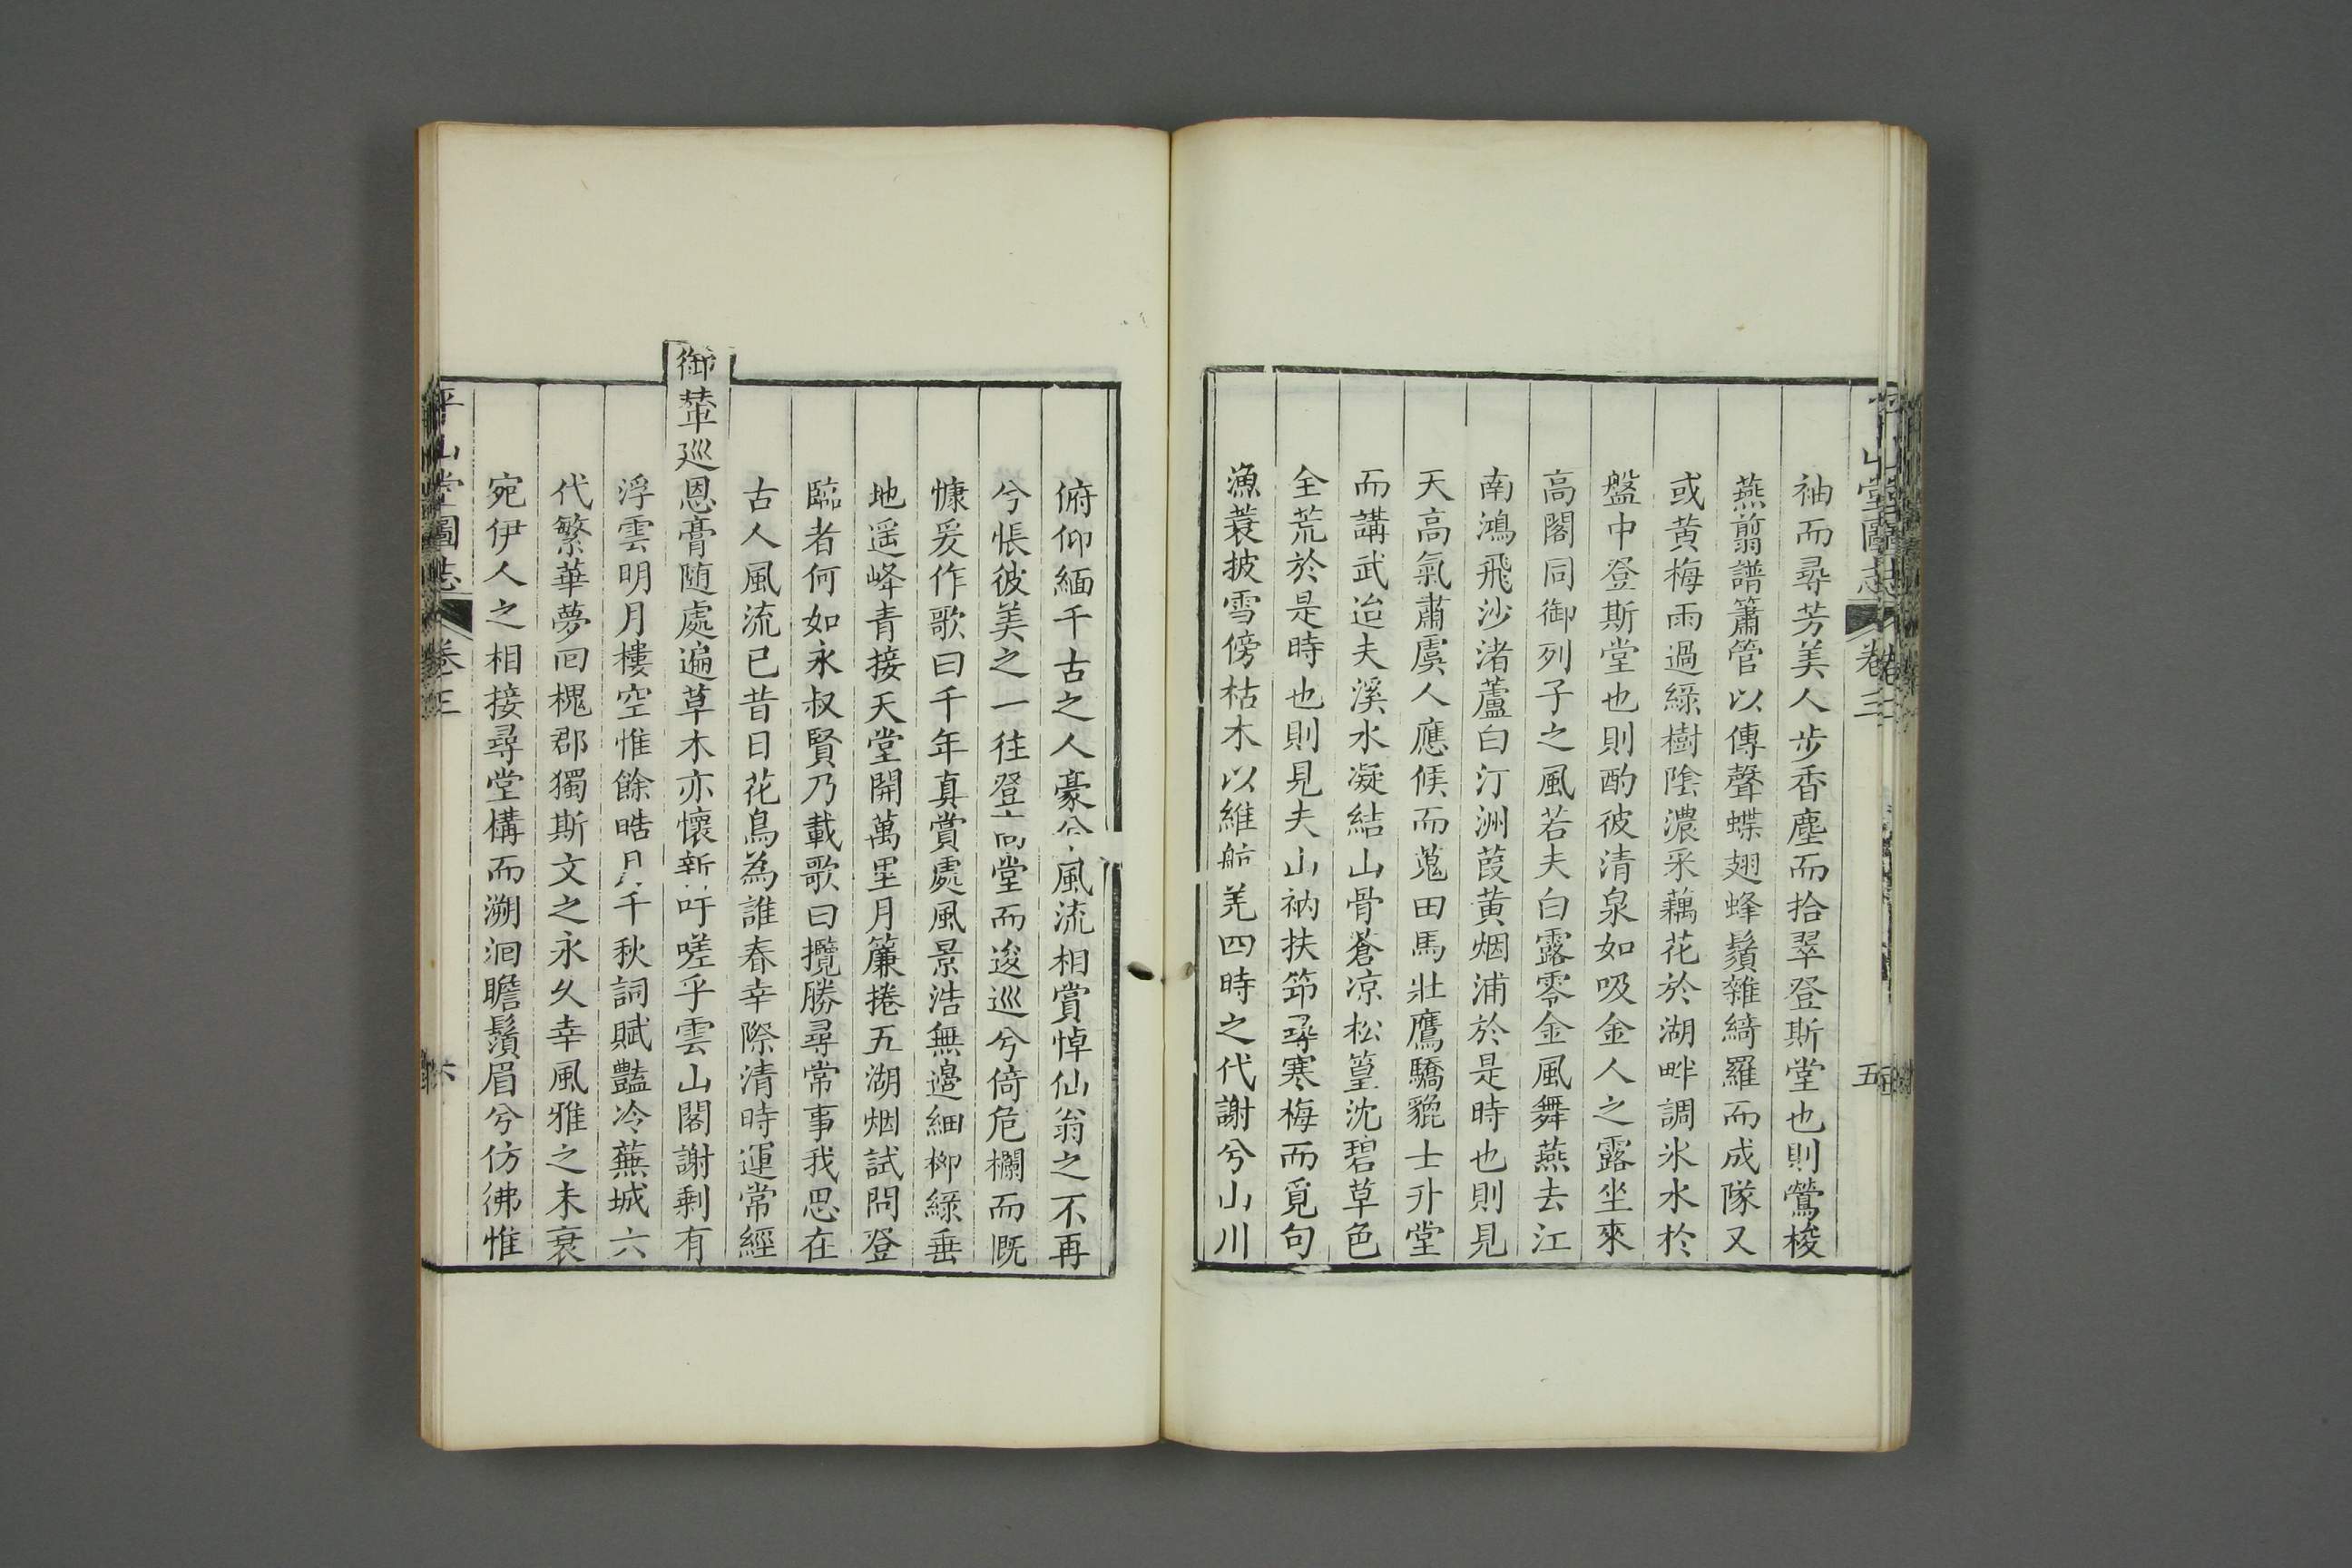 平山堂圖志 卷三 五
袖而尋芳美人步香塵而拾翠登斯堂也則鶯梭
燕翦譜簫管以傳聲蝶翅蜂鬚雜綺羅而成隊又
或黃梅雨過綠樹陰濃采藕花於湖畔調氷水於
盤中登斯堂也則酌彼清泉如吸金人之露坐來
高閣同御列子之風若夫白露零金風舞燕去江
南鴻飛沙渚蘆白汀洲葭黃烟浦於是時也則見
天高氣肅虞人應候而蒐田馬壯鷹驕貔士升堂
而講武迨夫溪水凝結山骨蒼凉松篁沈碧草色
全荒於是時也則見夫山衲扶筇尋寒梅而覓句
漁蓑披雪傍枯木以維航羌四時之代謝兮山川
俯仰緬千古之人豪兮風流相賞悼仙翁之不再
兮悵彼美之一往登高堂而逡巡兮倚危欄而慨
慷爰作歌曰千年真賞處風景浩無邊細柳綠垂
地遥峰青接天堂開萬里月簾捲五湖烟試問登
臨者何如永叔賢乃載歌曰攬勝尋常事我思在
古人風流已昔日花鳥為誰春幸際清時運常經
御輦巡恩膏随處遍草木亦懷新吁嗟乎雲山閣謝剩有
浮雲明月樓空惟餘皓月千秋詞賦豔冷蕪城六
代繁華夢回槐郡獨斯文之永久幸風雅之未衰
宛伊人之相接尋堂構而溯洄瞻鬚眉兮仿彿惟
平山堂圖志 卷三 六